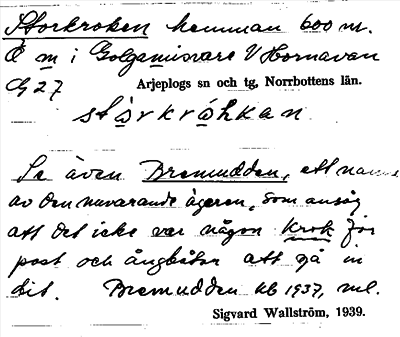 Storkroken hemman 600 m.
Ö m i Golgamisvare V Hornavan
G 27 Arjeplogs sn och tg, Norrbottens län.
Se även Bremudden, ett namn
av den nuvarande ägaren, som ansåg
att det icke var någon krok för
post och ångbåtar att gå in
dit. Bremudden hb 1937, ml.
Sigvard Wallström, 1939.